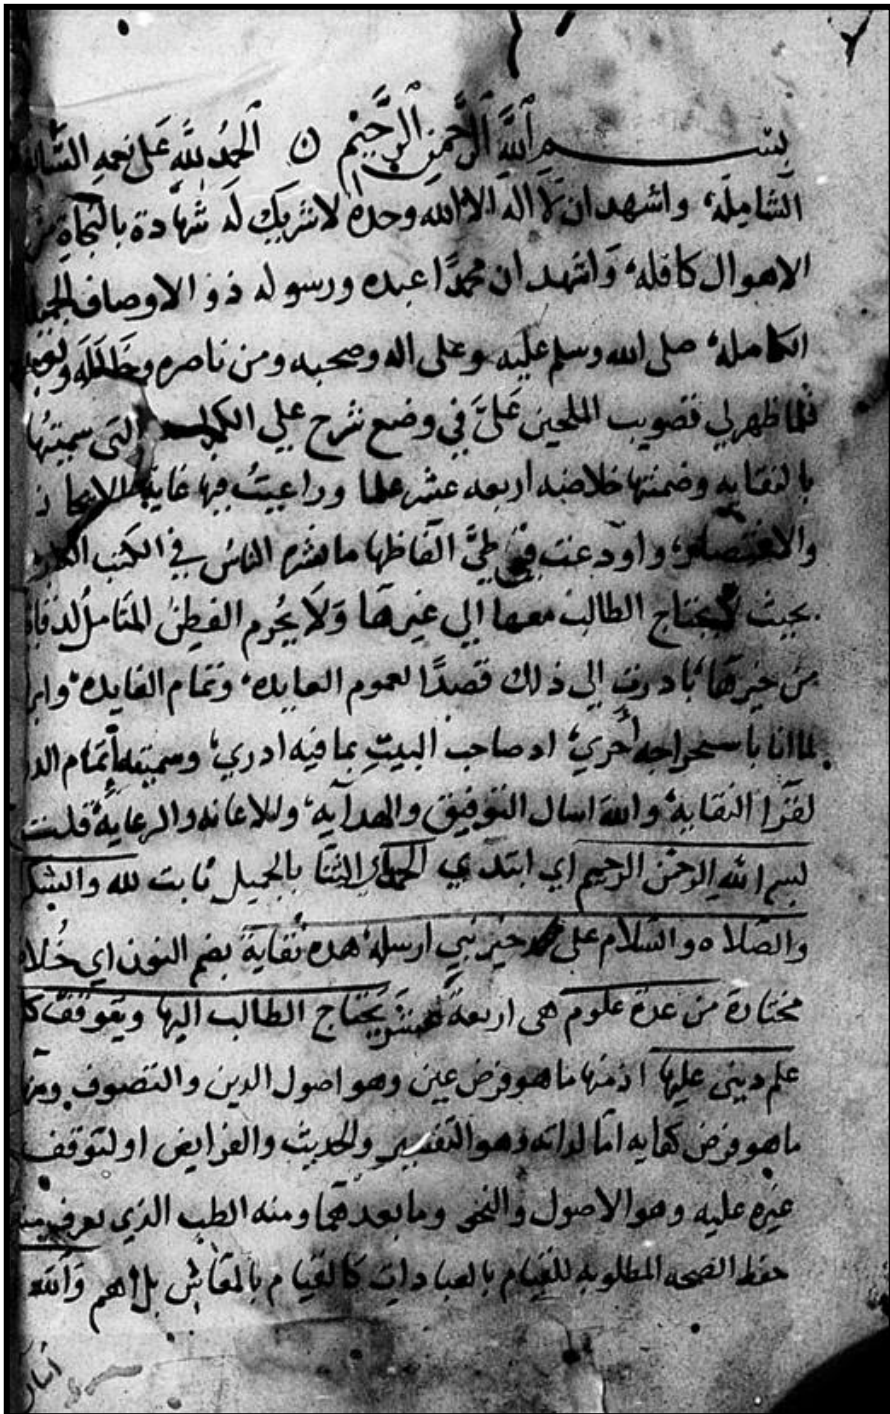 بسم الله الرحمن الرحيم ن الحمد لله على نعمه
الشاملة، واشهد ان لا اله الا الله وحده لا شريك له شهادة بالنجاة من
الاهوال كافله، واشهد ان محمدا عبده ورسوله ذو الاوصاف
الكامله، صلى الله وسلم عليه وعلى اله وصحبه ومن ناصره
فلما ظهر لي تصويب الملحين علي في وضع شرح علي التي سميتها
بالنقايه وضمنتها خلاصه اربعه عشر علما وراعيت فيها غاية الايجاز
والاختصار، واودعت في طي الفاظها ما نشره الناس في الكتب
بحيث لا يحتاج الطالب معها الي غيرها ولا يحرم الفطن المتامل
من خيرها، بادرت الي ذلك قصدا لعموم العايده، وتمام الفايده،
لما انا باستخراجه أحري، اد صاحب البيت بما فيه ادري، وسميته اتمام
لقرا النقايه، والله اسال التوفيق والهدايه، والاعانه والرعايه، قلت
بسم الله الرحمن الرحيم اي ابتدي الحمد اي الثنا بالجميل ثابت لله والشكر
والصلاه والسلام على محمد خير نبي ارسله هده نقاية بضم النون اي
مختارة من عدة علوم هي اربعة عشر يحتاج الطالب اليها ويتوقف كل
علم ديني عليها اذ منها ما هو فرض عين وهو اصول الدين والتصوف ومنها
ما هو فرض كفايه اما لداته وهو التفسير والحديث والفرايض او لتوقف
غيره عليه وهو الاصول والنحو وما بعدهما ومنه الطب الذي يعرف منه
حفظ الصحه المطلوبه للقيام بالعبادات كالقيام بالمعاش بل اهم والله